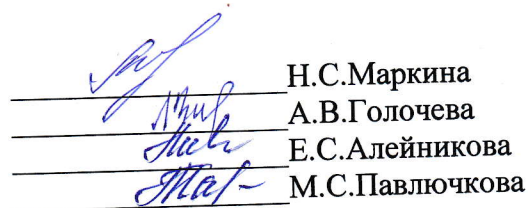 Н.С.Маркина
А.В.Голочева
Е.С.Алейникова
М.С.Павлючкова